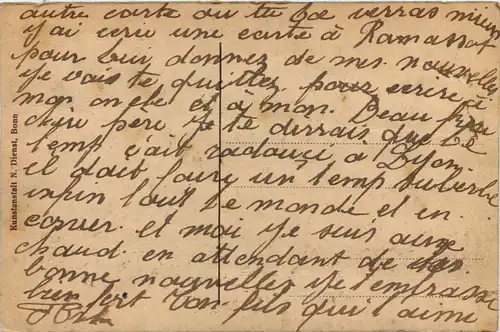 autre carte ou tu la verras mieux
j'ai ecrit une carte à Ramassot
pour lui donnez de mes nouvelles
je vais te quittez pour ecrire à
mon oncle et à mon Beau frère
cher père je te dirrais que le
temp c'ait radouci a Lyon
il doit faire un temp superbe
enfin tout le monde et en
et moi je suis au
chaud en attendant de
bonne nouvelles je t'embrasse
bien fort ton fils qui t'aime
Kunstanstalt N. Dienst, Bonn